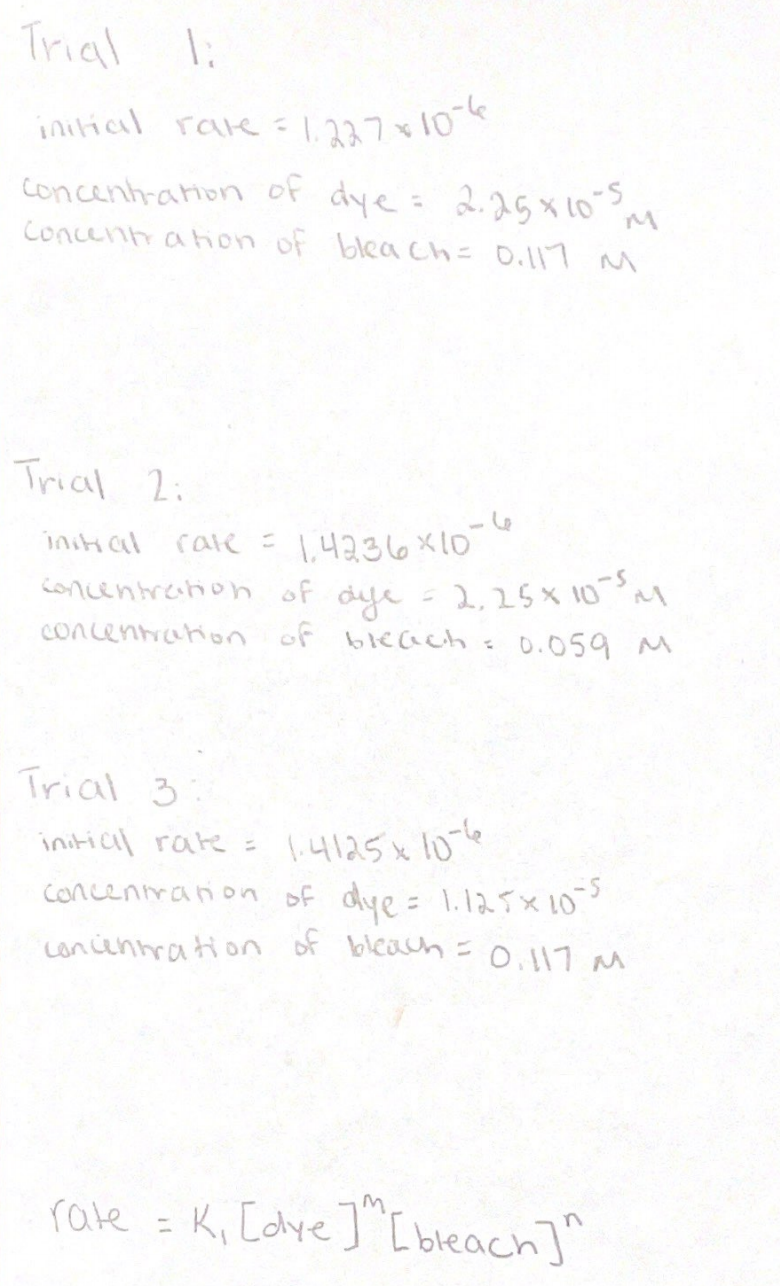 Trial 1:
initial rate = 1.227 x 10^-6
concentration of dye = 2.25 x 10^-5 M
concentration of bleach = 0.117 M
Trial 2:
initial rate = 1.4236 x 10^-6
concentration of dye = 2.25 x 10^-5 M
concentration of bleach = 0.059 M
Trial 3:
initial rate = 1.4125 x 10^-6
concentration of dye = 1.125 x 10^-5
concentration of bleach = 0.117 M
rate = K₁ [dye]^m [bleach]^n